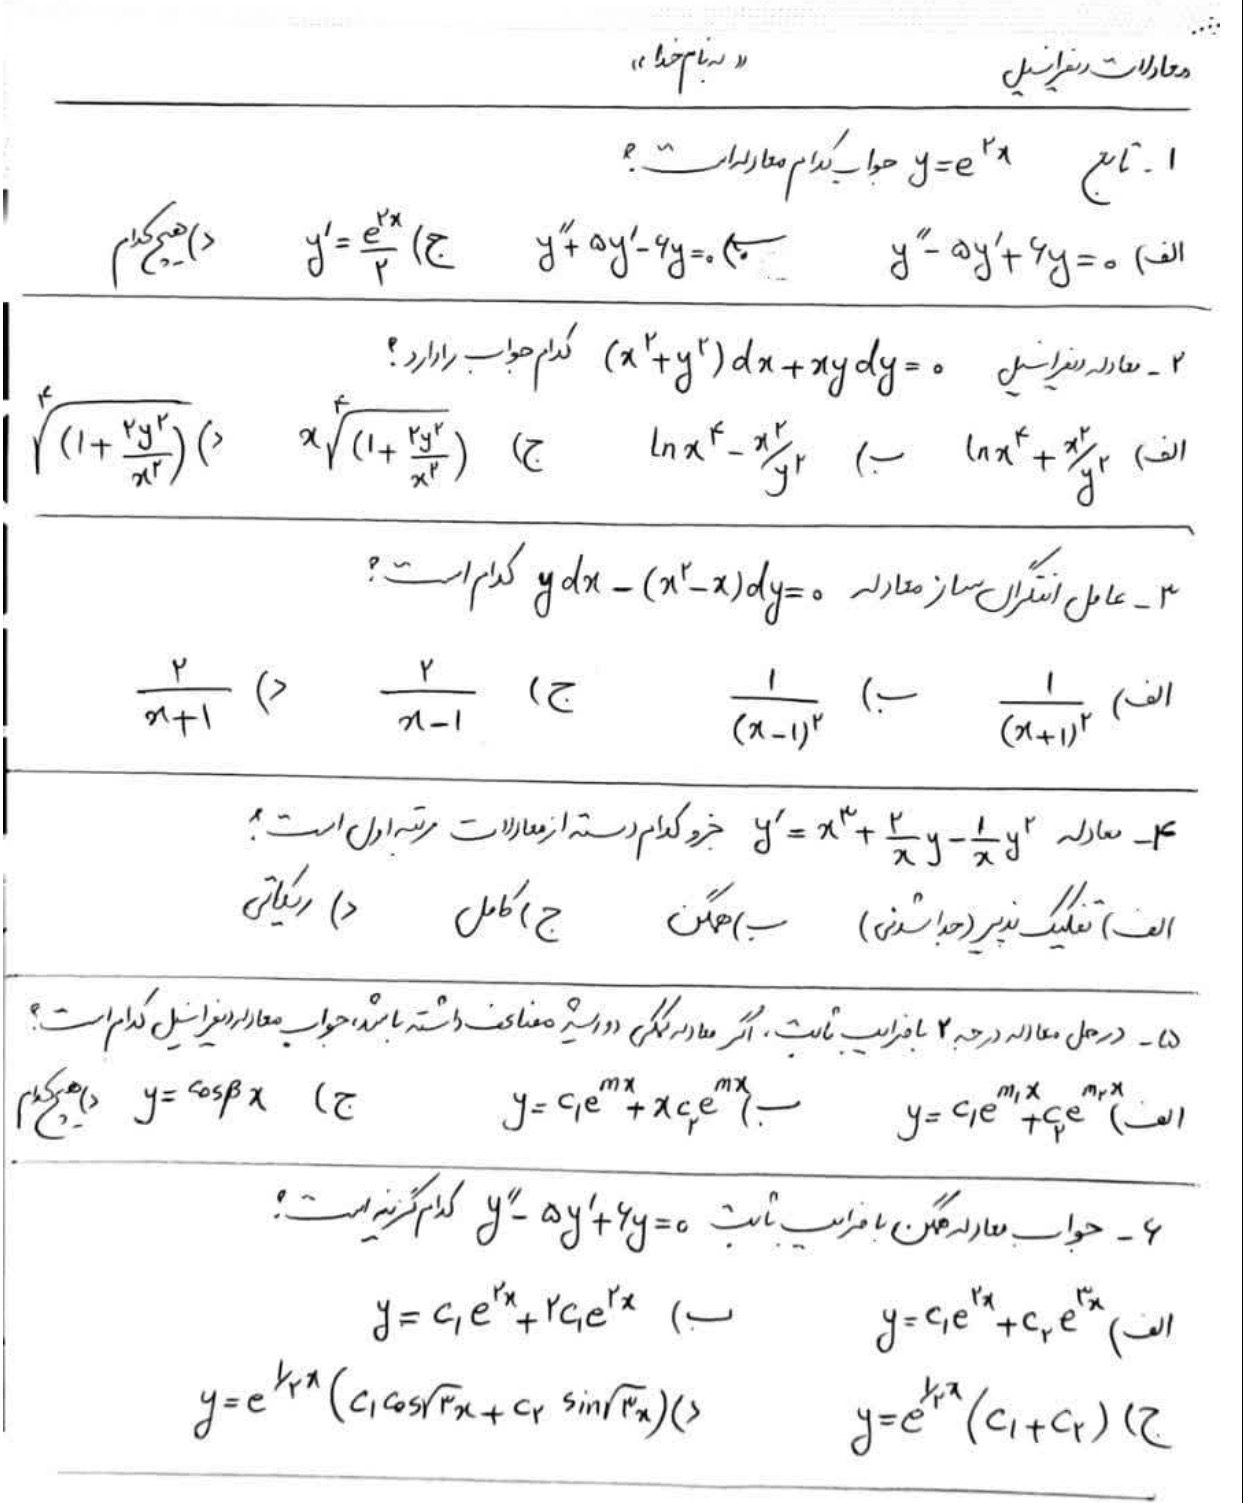 معادلات دیفرانسیل «به نام خدا»
۱- تابع y=e^{۲x} جواب کدام معادله است؟
الف) y″-۵y′+۶y=۰ ب) y″+۵y′-۶y=۰ ج) y′=\frac{e^{۲x}}{۲} د) هیچکدام
۲- معادله دیفرانسیل (x^۲+y^۲)dx+xydy=۰ کدام جواب را دارد؟
الف) lnx^۴+x^۲/y^۲ ب) lnx^۴-x^۲/y^۲ ج) x\sqrt[۴]{(۱+\frac{۲y^۲}{x^۲})} د) \sqrt[۴]{(۱+\frac{۲y^۲}{x^۲})}
۳- عامل انتگرال ساز معادله ydx-(x^۲-x)dy=۰ کدام است؟
الف) \frac{۱}{(x+۱)^۲} ب) \frac{۱}{(x-۱)^۲} ج) \frac{۲}{x-۱} د) \frac{۲}{x+۱}
۴- معادله y′=x^۳+\frac{۲}{x}y-\frac{۱}{x}y^۲ جزو کدام دسته از معادلات مرتبه اول است؟
الف) تفکیک پذیر (جدا شدنی) ب) همگن ج) کامل د) ریکاتی
۵- در حل معادله درجه ۲ با ضرایب ثابت، اگر معادله کمکی دو ریشه مضاعف داشته باشد، جواب معادله دیفرانسیل کدام است؟
الف) y=c_۱e^{m_۱x}+c_۲e^{m_۲x} ب) y=c_۱e^{mx}+xc_۲e^{mx} ج) y=cosβx د) هیچکدام
۶- جواب معادله همگن با ضرایب ثابت y″-۵y′+۶y=۰ کدام گزینه است؟
الف) y=c_۱e^{۲x}+c_۲e^{۳x} ب) y=c_۱e^{۲x}+۲c_۱e^{۲x}
ج) y=e^{۱/۲x}(c_۱+c_۲) د) y=e^{۱/۲x}(c_۱cos√۳x+c_۲ sin√۳x)